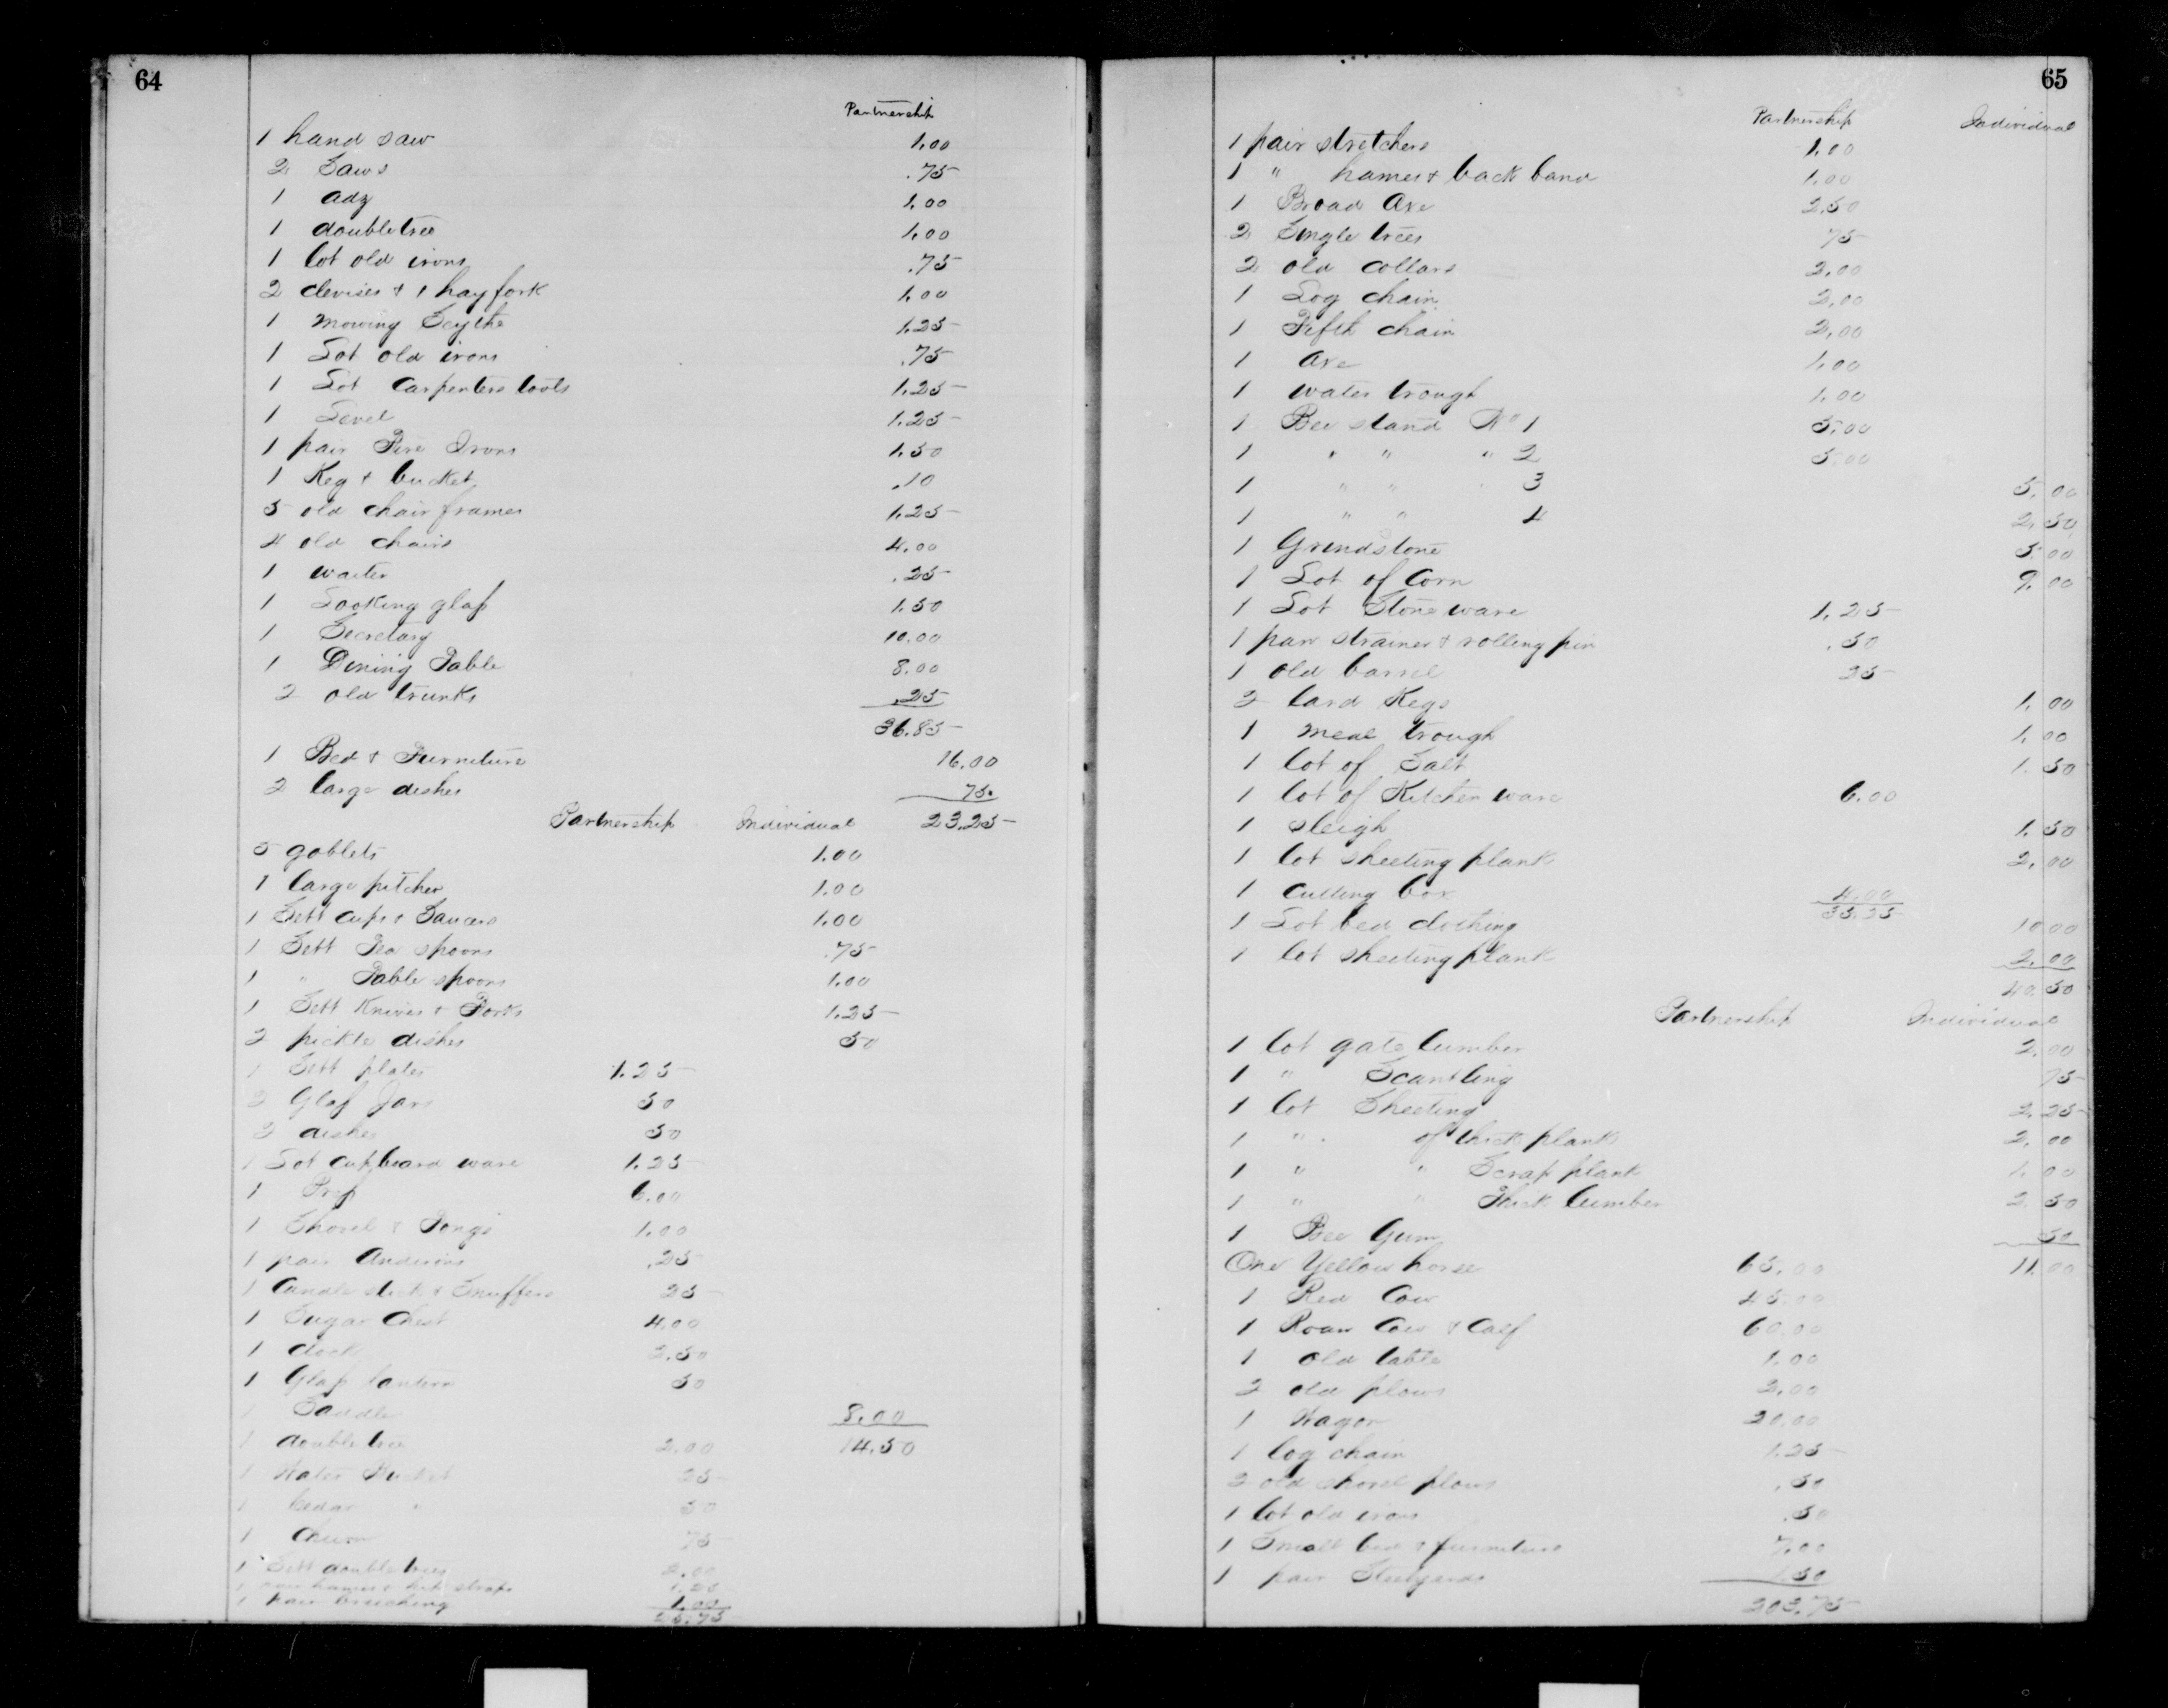 64
Partnership
1 hand saw 1.00
2 Saws .75
1 adz 1.00
1 doubletree 1.00
1 lot old irons .75
2 clevises & 1 hay fork 1.00
1 mowing Scythe 1.25
1 Lot old irons .75
1 Lot Carpenters tools 1.25
1 Level 1.25
1 pair Fire Irons 1.50
1 Keg & bucket .10
5 old chair frames 1.25
4 old chairs 4.00
1 waiter .25
1 Looking glass 1.50
1 Secretary 10.00
1 Dining Table 8.00
2 old trunks .25
36.85
1 Bed & Furniture 16.00
2 large dishes 75.
Partnership Individual 23.25
5 goblets 1.00
1 large pitcher 1.00
1 Sett cups & Saucers 1.00
1 Sett Tea spoons .75
1 " Table spoons 1.00
1 Sett Knives & Forks 1.25
2 pickle dishes 50
1 Sett plates 1.25
2 Glass Jars 50
2 dishes 50
1 Lot cupboard ware 1.25
1 Press 6.00
1 Shovel & Tongs 1.00
1 pair Andirins .25
1 Candle stick & Snuffers 25
1 Sugar Chest 4.00
1 clock 2.50
1 Glass lantern 50
1 Saddle 8.00
1 doubletree 2.00 14.50
1 Water Bucket 25
1 Cedar " 50
1 Churn 75
1 Sett doubletrees 2.00
1 pair hames & hip straps 1.25
1 pair breeching 1.00
25.75
65
Partnership Individual
1 pair stretchers 1.00
1 " hames & back band 1.00
1 Broad Axe 2.50
2 Single trees 75
2 old collars 2.00
1 Log chain 2.00
1 Fifth chain 2.00
1 Axe 1.00
1 water trough 1.00
1 Bee stand No 1 5.00
1 " " " 2 5.00
1 " " " 3 5.00
1 " " 4 2.50
1 Grindstone 5.00
1 Lot of Corn 9.00
1 Lot Stoneware 1.25
1 pan strainer & rolling pin .50
1 old barrel 25
2 lard Kegs 1.00
1 meal trough 1.00
1 lot of Salt 1.50
1 lot of Kitchen ware 6.00
1 sleigh 1.50
1 lot sheeting plank 2.00
1 cutting box 4.00
35.25
1 Lot bed clothing 10.00
1 lot sheeting plank 2.00
40.50
Partnership Individual
1 lot gate lumber 2.00
1 " Scantling 75
1 lot Sheeting 2.25
1 " of thick plank 2.00
1 " " Scrap plank 1.00
1 " " Thick lumber 2.50
1 Bee Gum 50
One Yellow horse 65.00 11.00
1 Red Cow 45.00
1 Roan Cow & Calf 60.00
1 old table 1.00
2 old plows 2.00
1 Wagon 20.00
1 log chain 1.25
2 old shovel plows .50
1 lot old irons .50
1 Small bed & furniture 7.00
1 pair Steelyards 1.50
203.75